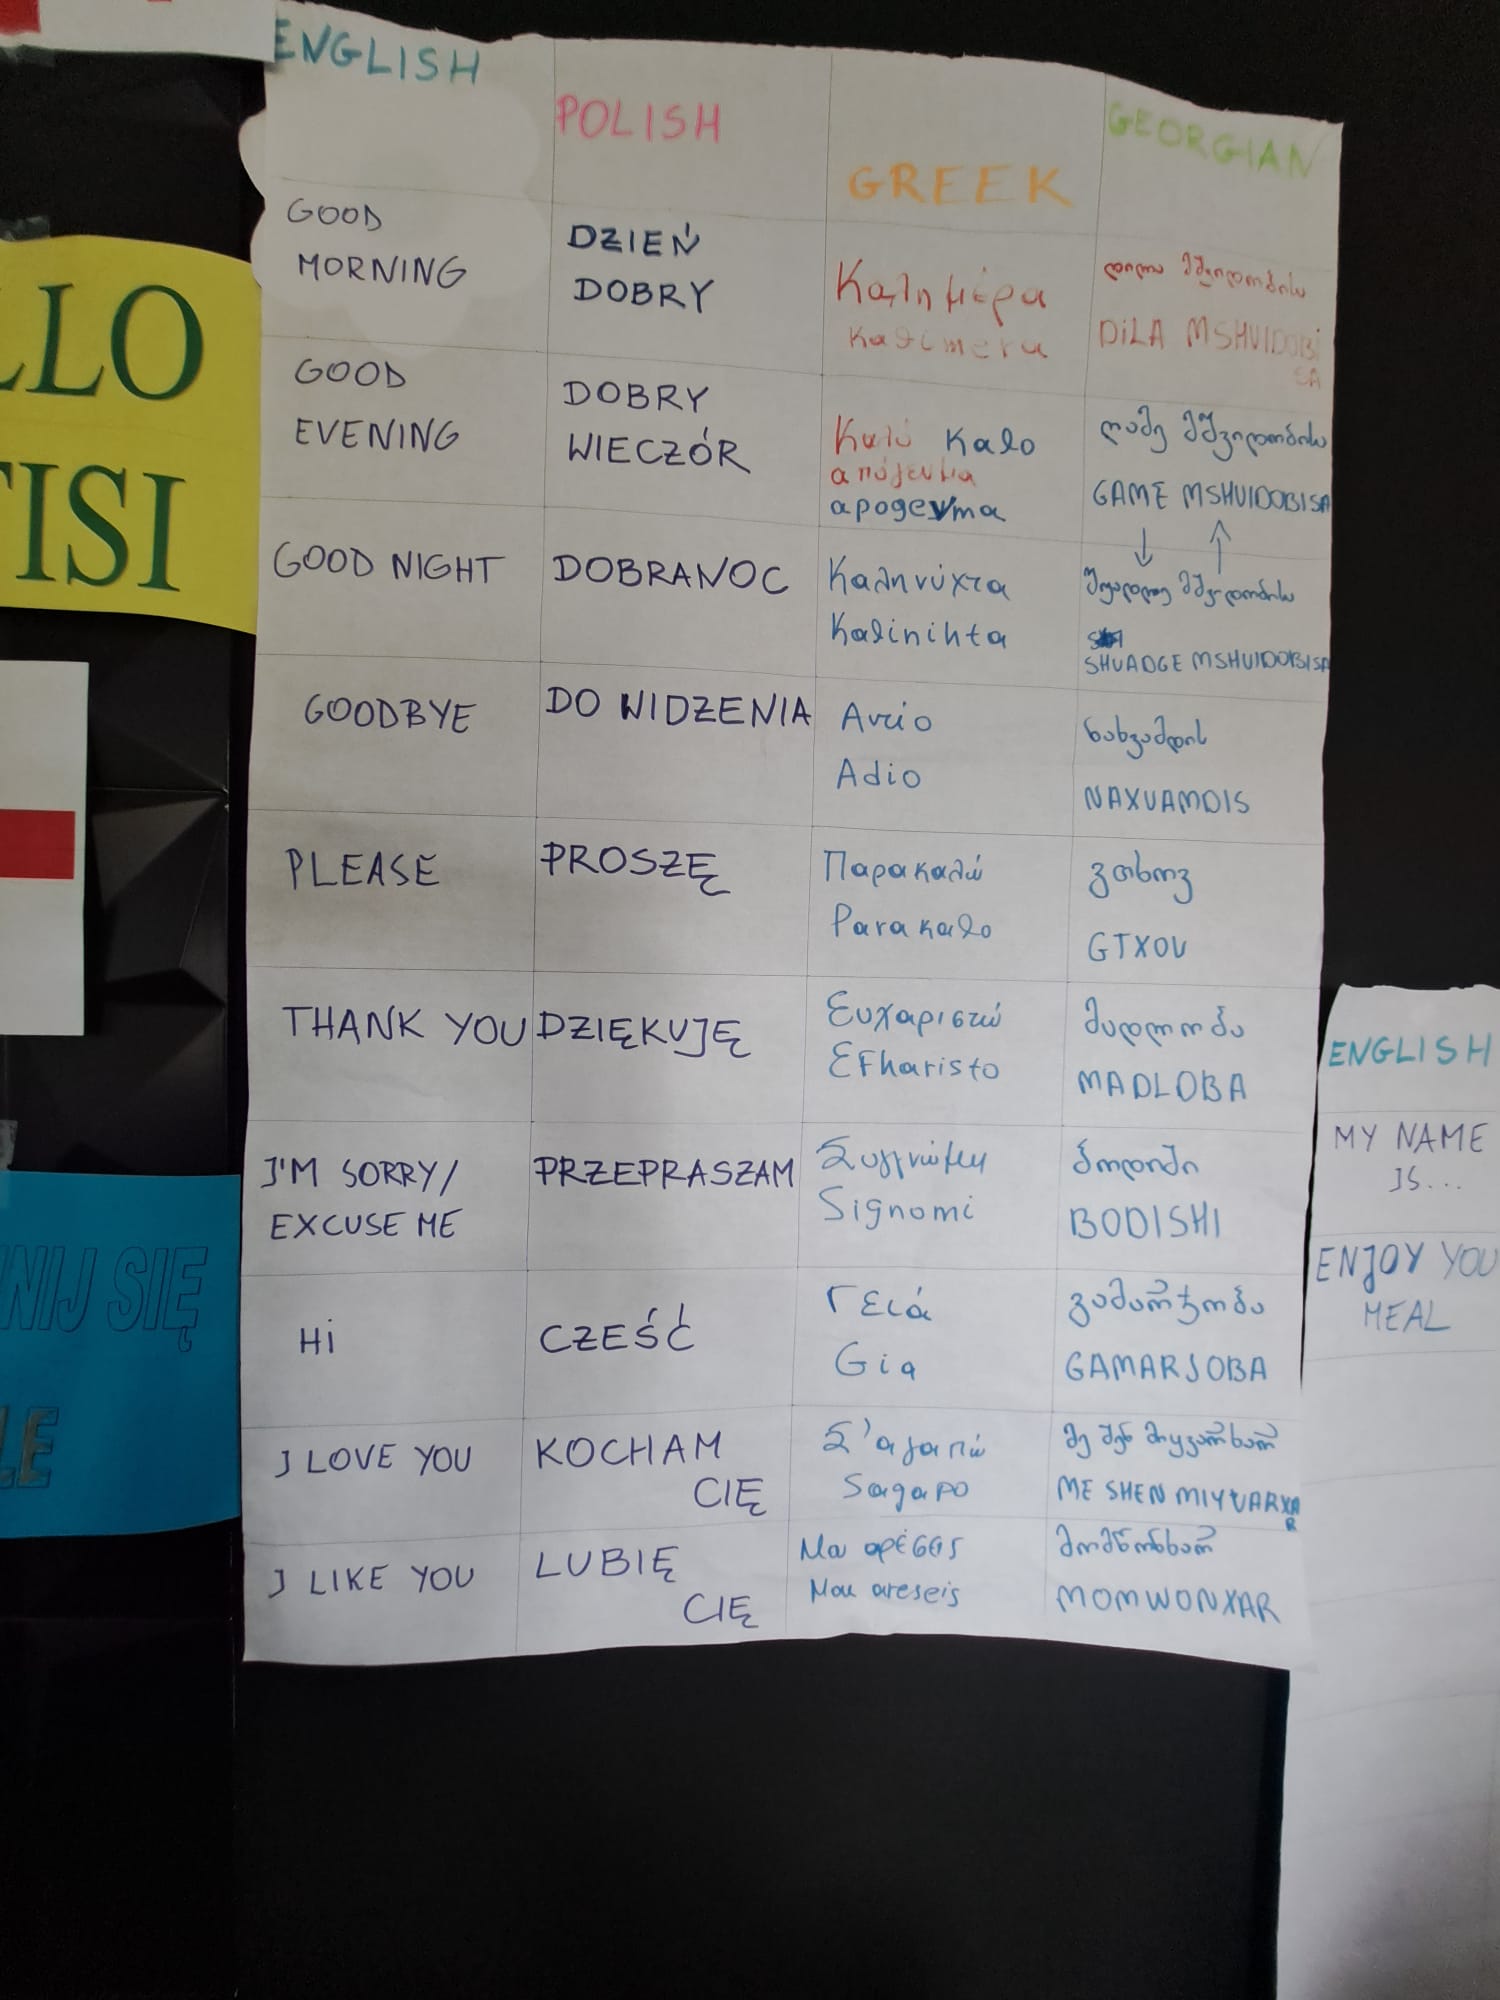 ENGLISH
POLISH
GREEK
GEORGIAN
GOOD
MORNING
DZIEŃ
DOBRY
Καλημέρα
Kalimera
დილა მშვიდობისა
DILA MSHVIDOBI
SA
GOOD
EVENING
DOBRY
WIECZÓR
Καλό Kalo
απόγευμα
apogevma
ღამე მშვიდობისა
GAME MSHVIDOBISA
GOOD NIGHT
DOBRANOC
Καληνύχτα
Kalinihta
მშვიდობისა
SHUADGE MSHVIDOBISA
GOODBYE
DO WIDZENIA
Αντίο
Adio
ნახვამდის
NAXVAMDIS
PLEASE
PROSZĘ
Παρακαλώ
Parakalo
გთხოვ
GTXOV
THANK YOU
DZIĘKUJĘ
Ευχαριστώ
Efharisto
მადლობა
MADLOBA
I'M SORRY/
EXCUSE ME
PRZEPRASZAM
Συγγνώμη
Signomi
ბოდიში
BODISHI
Hi
CZEŚĆ
Γειά
Gia
გამარჯობა
GAMARJOBA
I LOVE YOU
KOCHAM
CIĘ
Σ'αγαπώ
Sagapo
მე შენ მიყვარხარ
ME SHEN MIYVARXA
R
I LIKE YOU
LUBIĘ
CIĘ
Μου αρέσεις
Mou areseis
მომწონხარ
MOMWONXAR
LLO
TISI
NIJ SIĘ
LE
ENGLISH
MY NAME
IS...
ENJOY YOU
MEAL